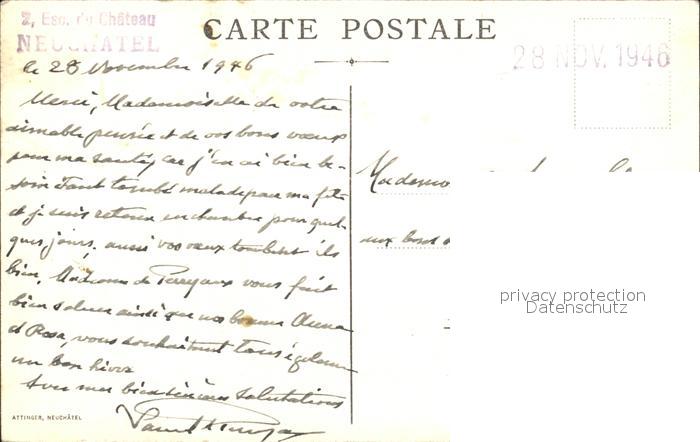 2, Esc. du Château
NEUCHATEL
CARTE POSTALE
28 NOV. 1946
le 28 Novembre 1946
Merci, Mademoiselle de votre
aimable pensée et de vos bons vœux
pour ma santé, car j'en ai bien be-
soin étant tombé malade pour ma fête
et je suis retenu en chambre pour quel-
ques jours, aussi vos vœux tombent ils
bien. Madame de Perregaux vous fait
bien saluer ainsi que nos bonnes Anna
et Rosa, vous souhaitant tous également
un bon hiver
Avec mes bien sincères salutations
aux bons
privacy protection
Datenschutz
ATTINGER, NEUCHÂTEL